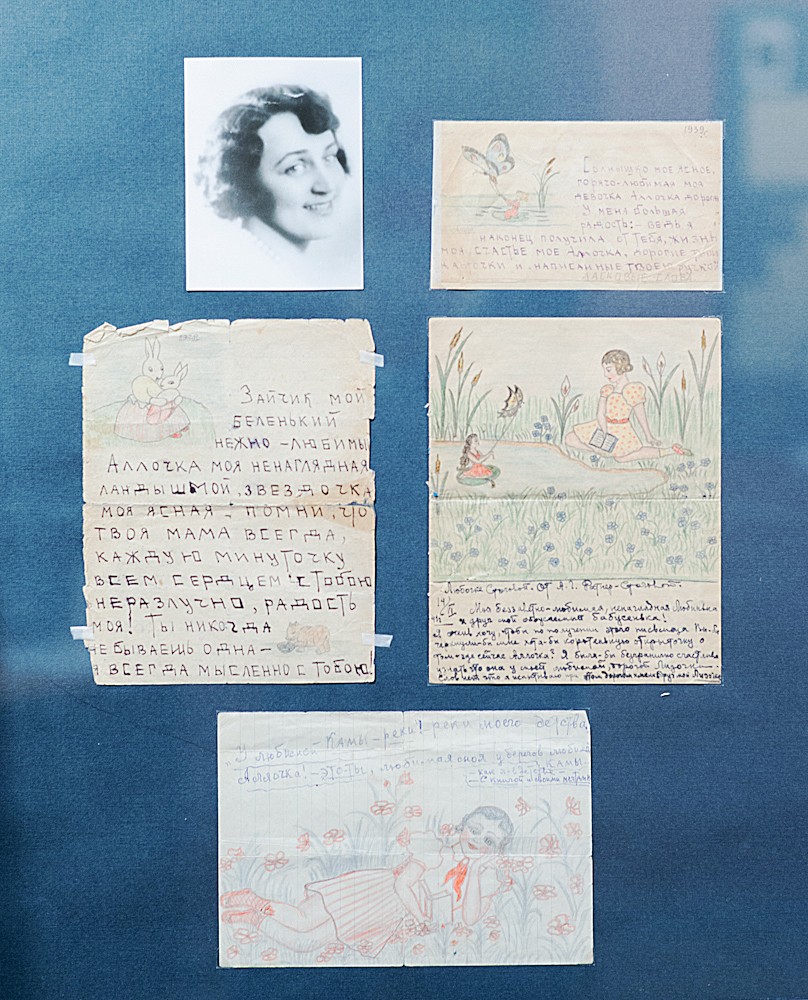 1939г.
Солнышко мое ясное,
горячо-любимая моя
девочка Аллочка
У меня большая
радость:- ведь я
наконец получила от тебя, жизнь
моя, счастье мое Аллочка, дорогие
и, написанные твоей ручкой
Зайчик мой
беленький
нежно-любимый
Аллочка моя ненаглядная
ландыш мой, звездочка
моя ясная - помни, что
твоя мама всегда,
каждую минуточку
всем сердцем с тобою
неразлучно, радость
моя! Ты никогда
не бываешь одна-
я всегда мысленно с тобою!
Любочке от А.
Моя беззаветно-любимая, ненаглядная
и друг мой бабусенька!
Я очень хочу, чтобы по получении этого письмеца
мне хоть-бы коротенькую о
где сейчас Аллочка? Я была-бы безгранично счастлива
знать что она у моей любимой, дорогой
"У любимой Камы-реки! реки моего детства.
Аллочка! -это-ты, любимая моя у берегов любимой
Камы.